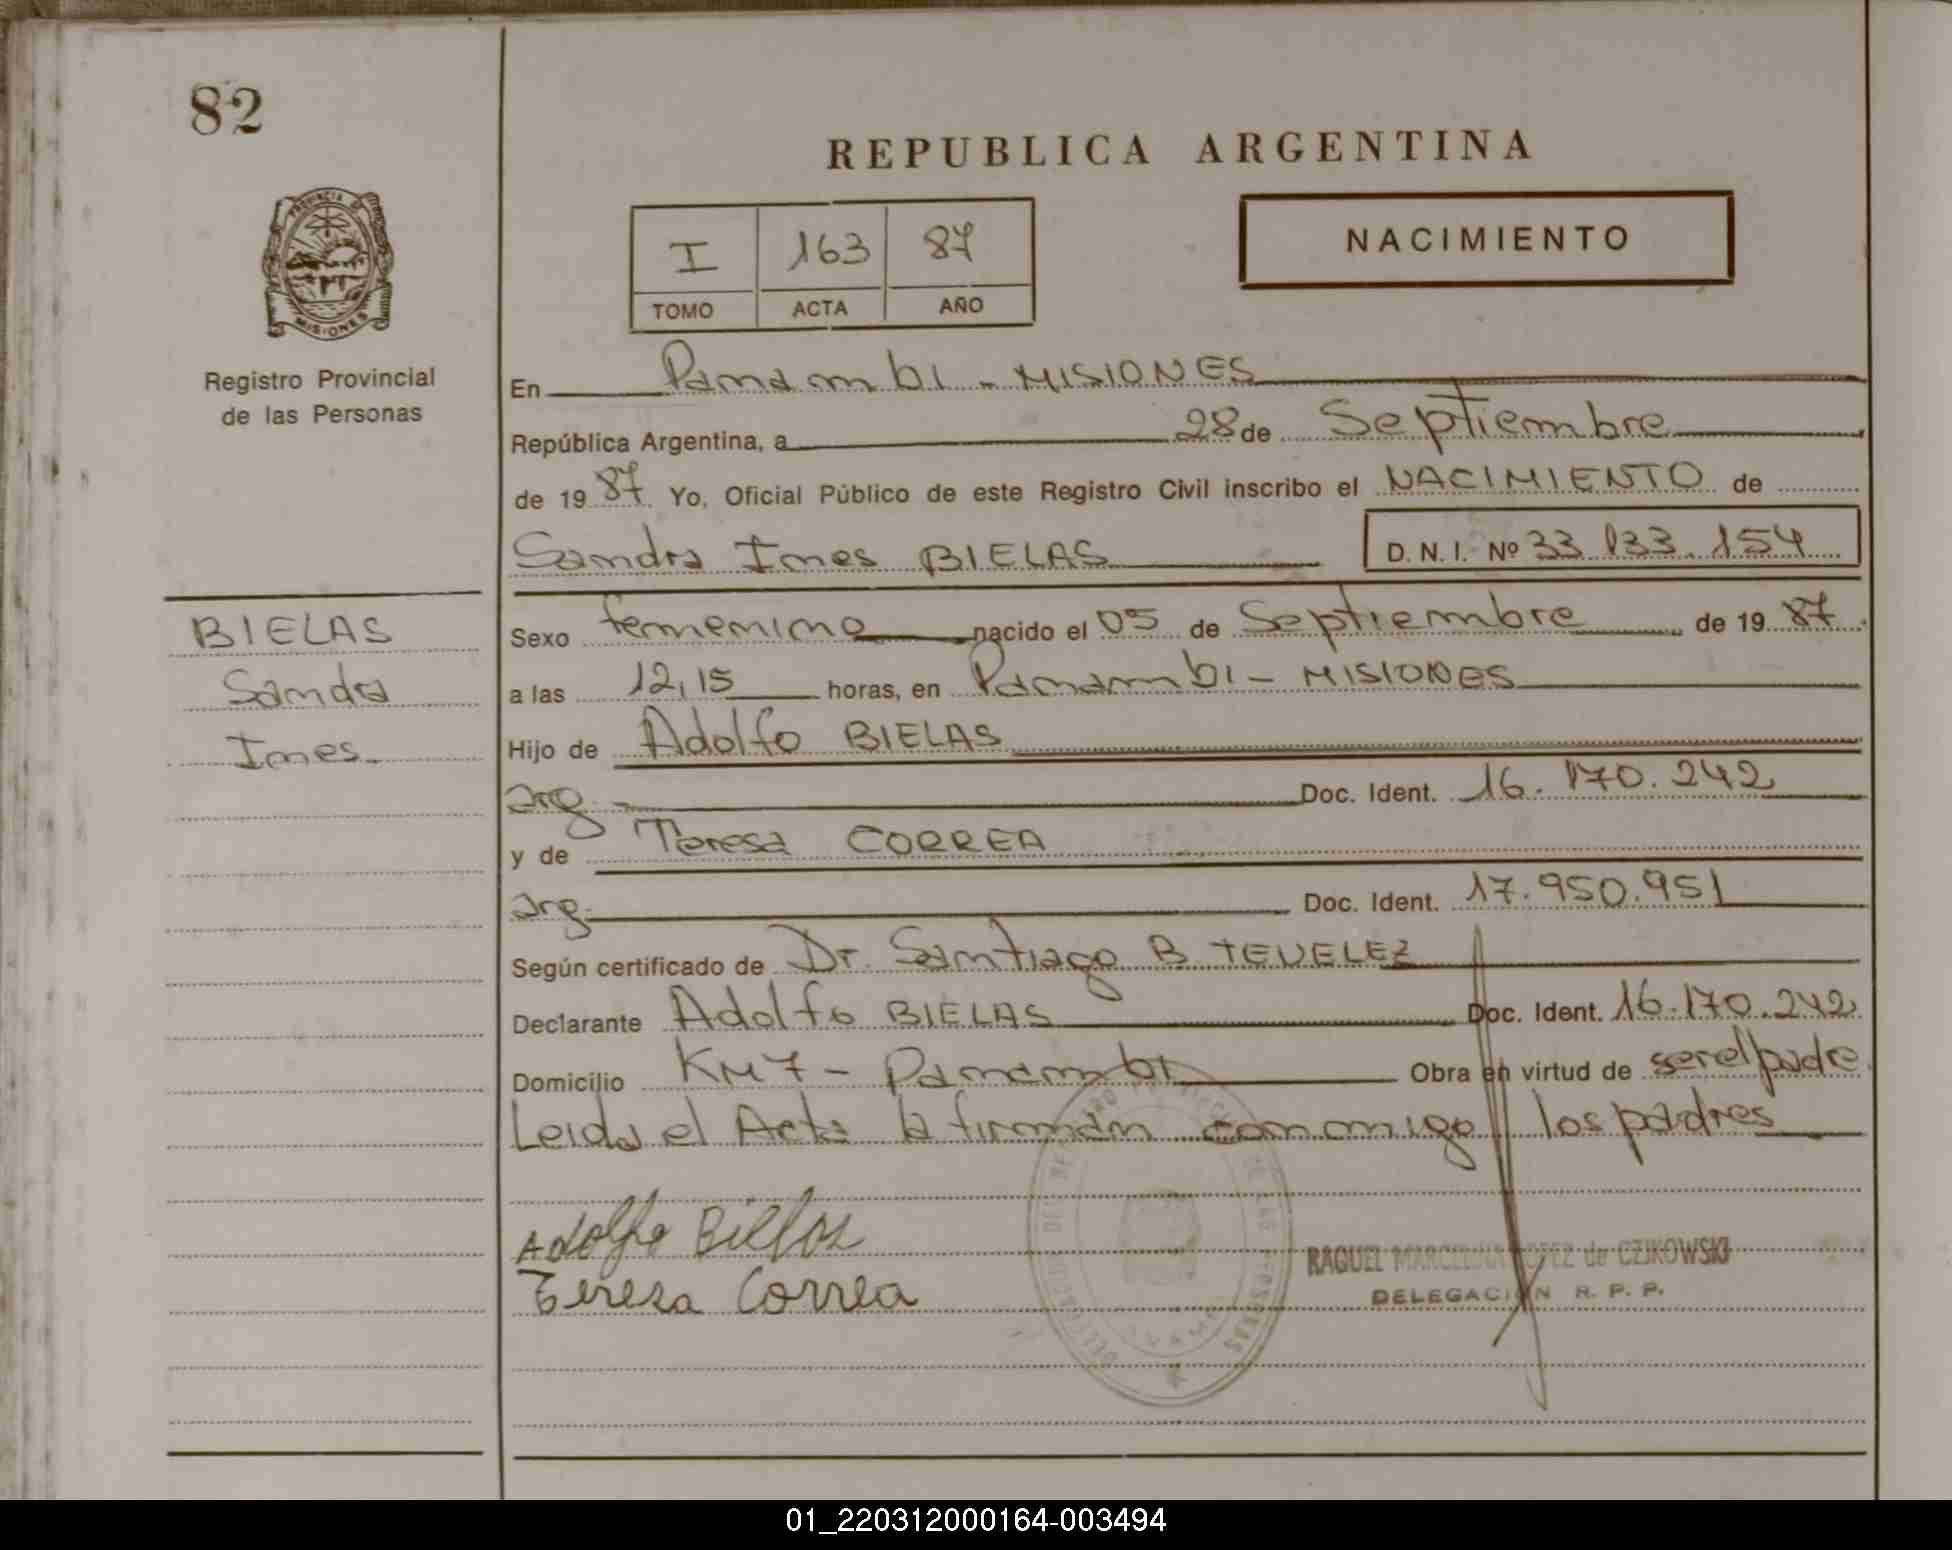 82
REPUBLICA ARGENTINA
PROVINCIA DE
MISIONES
Registro Provincial
de las Personas
I 163 87
TOMO ACTA AÑO
NACIMIENTO
En Panambi - MISIONES
República Argentina, a 28 de Septiembre
de 19 87 Yo, Oficial Público de este Registro Civil inscribo el NACIMIENTO de
Sandra Ines BIELAS D. N. I. Nº 33.133.154
BIELAS
Sandra
Ines.
Sexo femenino nacido el 05 de Septiembre de 19 87
a las 12,15 horas, en Panambi - MISIONES
Hijo de Adolfo BIELAS
arg. Doc. Ident. 16.170.242
y de Teresa CORREA
arg. Doc. Ident. 17.950.951
Según certificado de Dr. Santiago B TEVELEZ
Declarante Adolfo BIELAS Doc. Ident. 16.170.242
Domicilio KM 7 - Panambi Obra en virtud de ser el padre
Leida el Acta la firman conmigo los padres
Adolfo Biellas
Teresa Correa
RAQUEL MARCELINA LOPEZ de CZIKOWSKI
DELEGACION R. P. P.
01_220312000164-003494